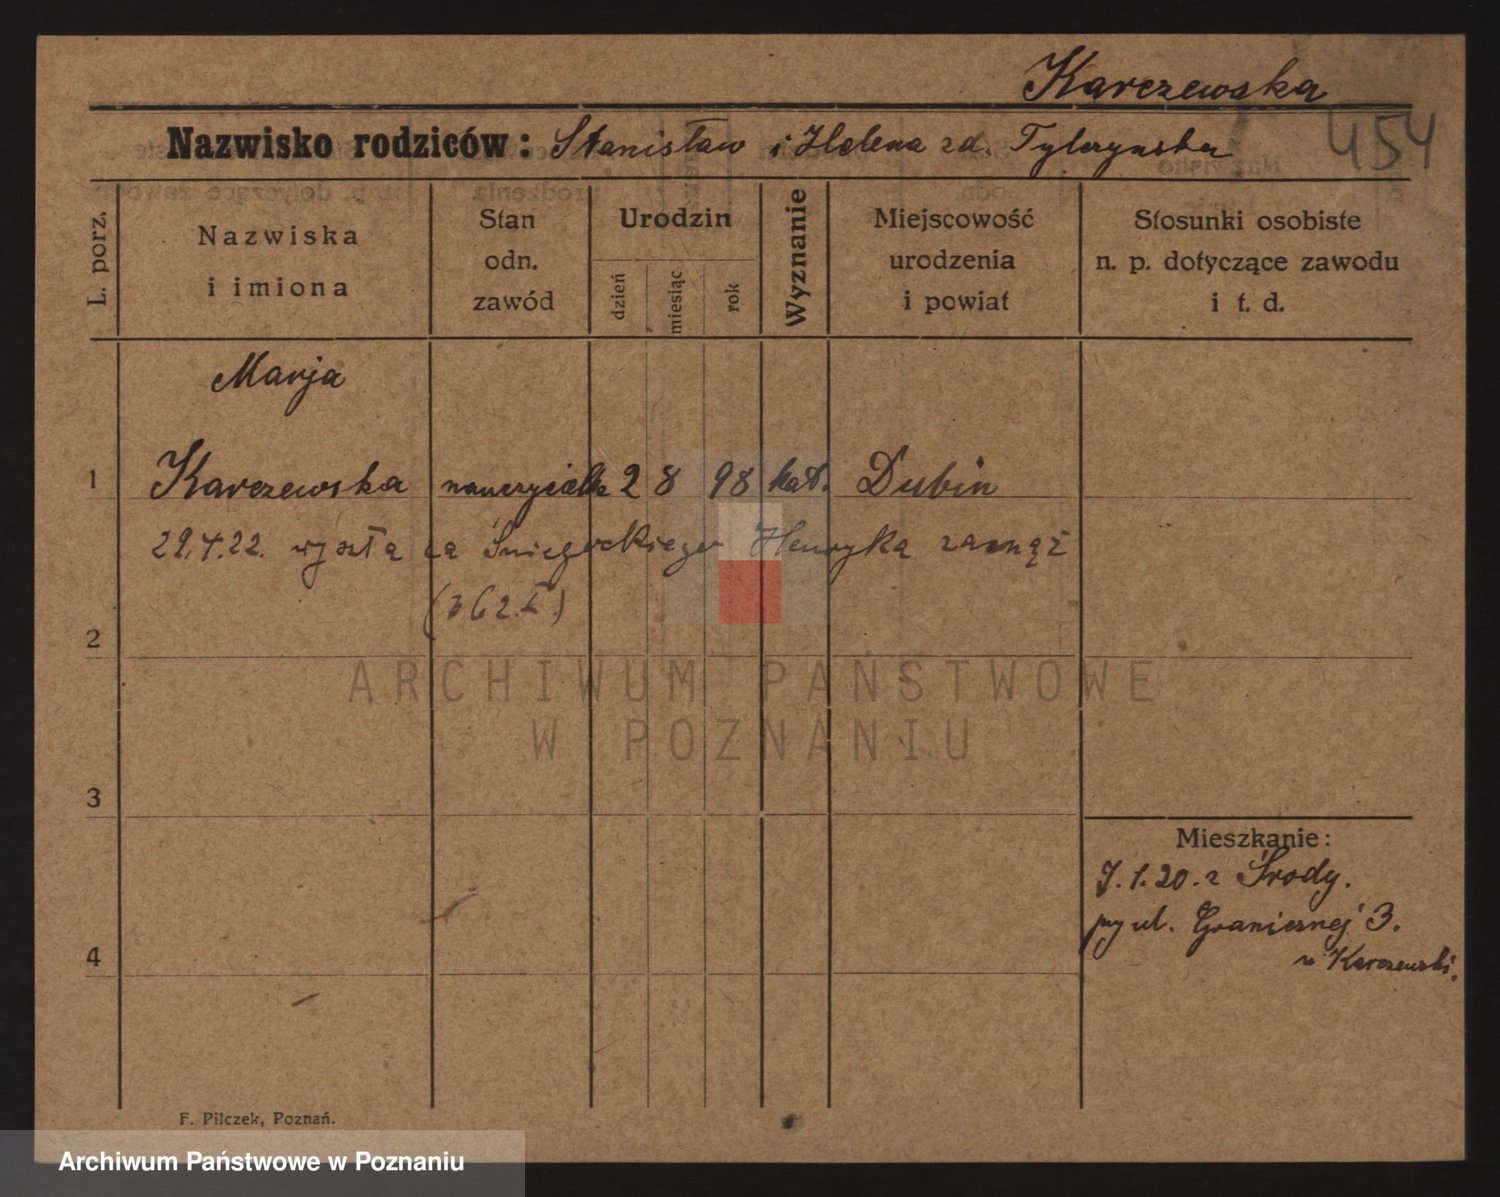 Karczewska
454
Nazwisko rodziców: Stanisław i Helena zd.
L. porz.
Nazwiska i imiona
Stan odn. zawód
Urodzin
dzień
miesiąc
rok
Wyznanie
Miejscowość urodzenia i powiat
Stosunki osobiste n. p. dotyczące zawodu i t. d.
Marja
1 Karczewska nauczycielka 2 8 98 kat. Dubin
29.4.22. wyszła za Śniegockiego Henryka zamąż
2
ARCHIWUM PAŃSTWOWE
W POZNANIU
3
Mieszkanie:
7.1.20. z Środy.
przy ul. Granicznej 3.
u Karczewski.
4
F. Pilczek, Poznań.
Archiwum Państwowe w Poznaniu